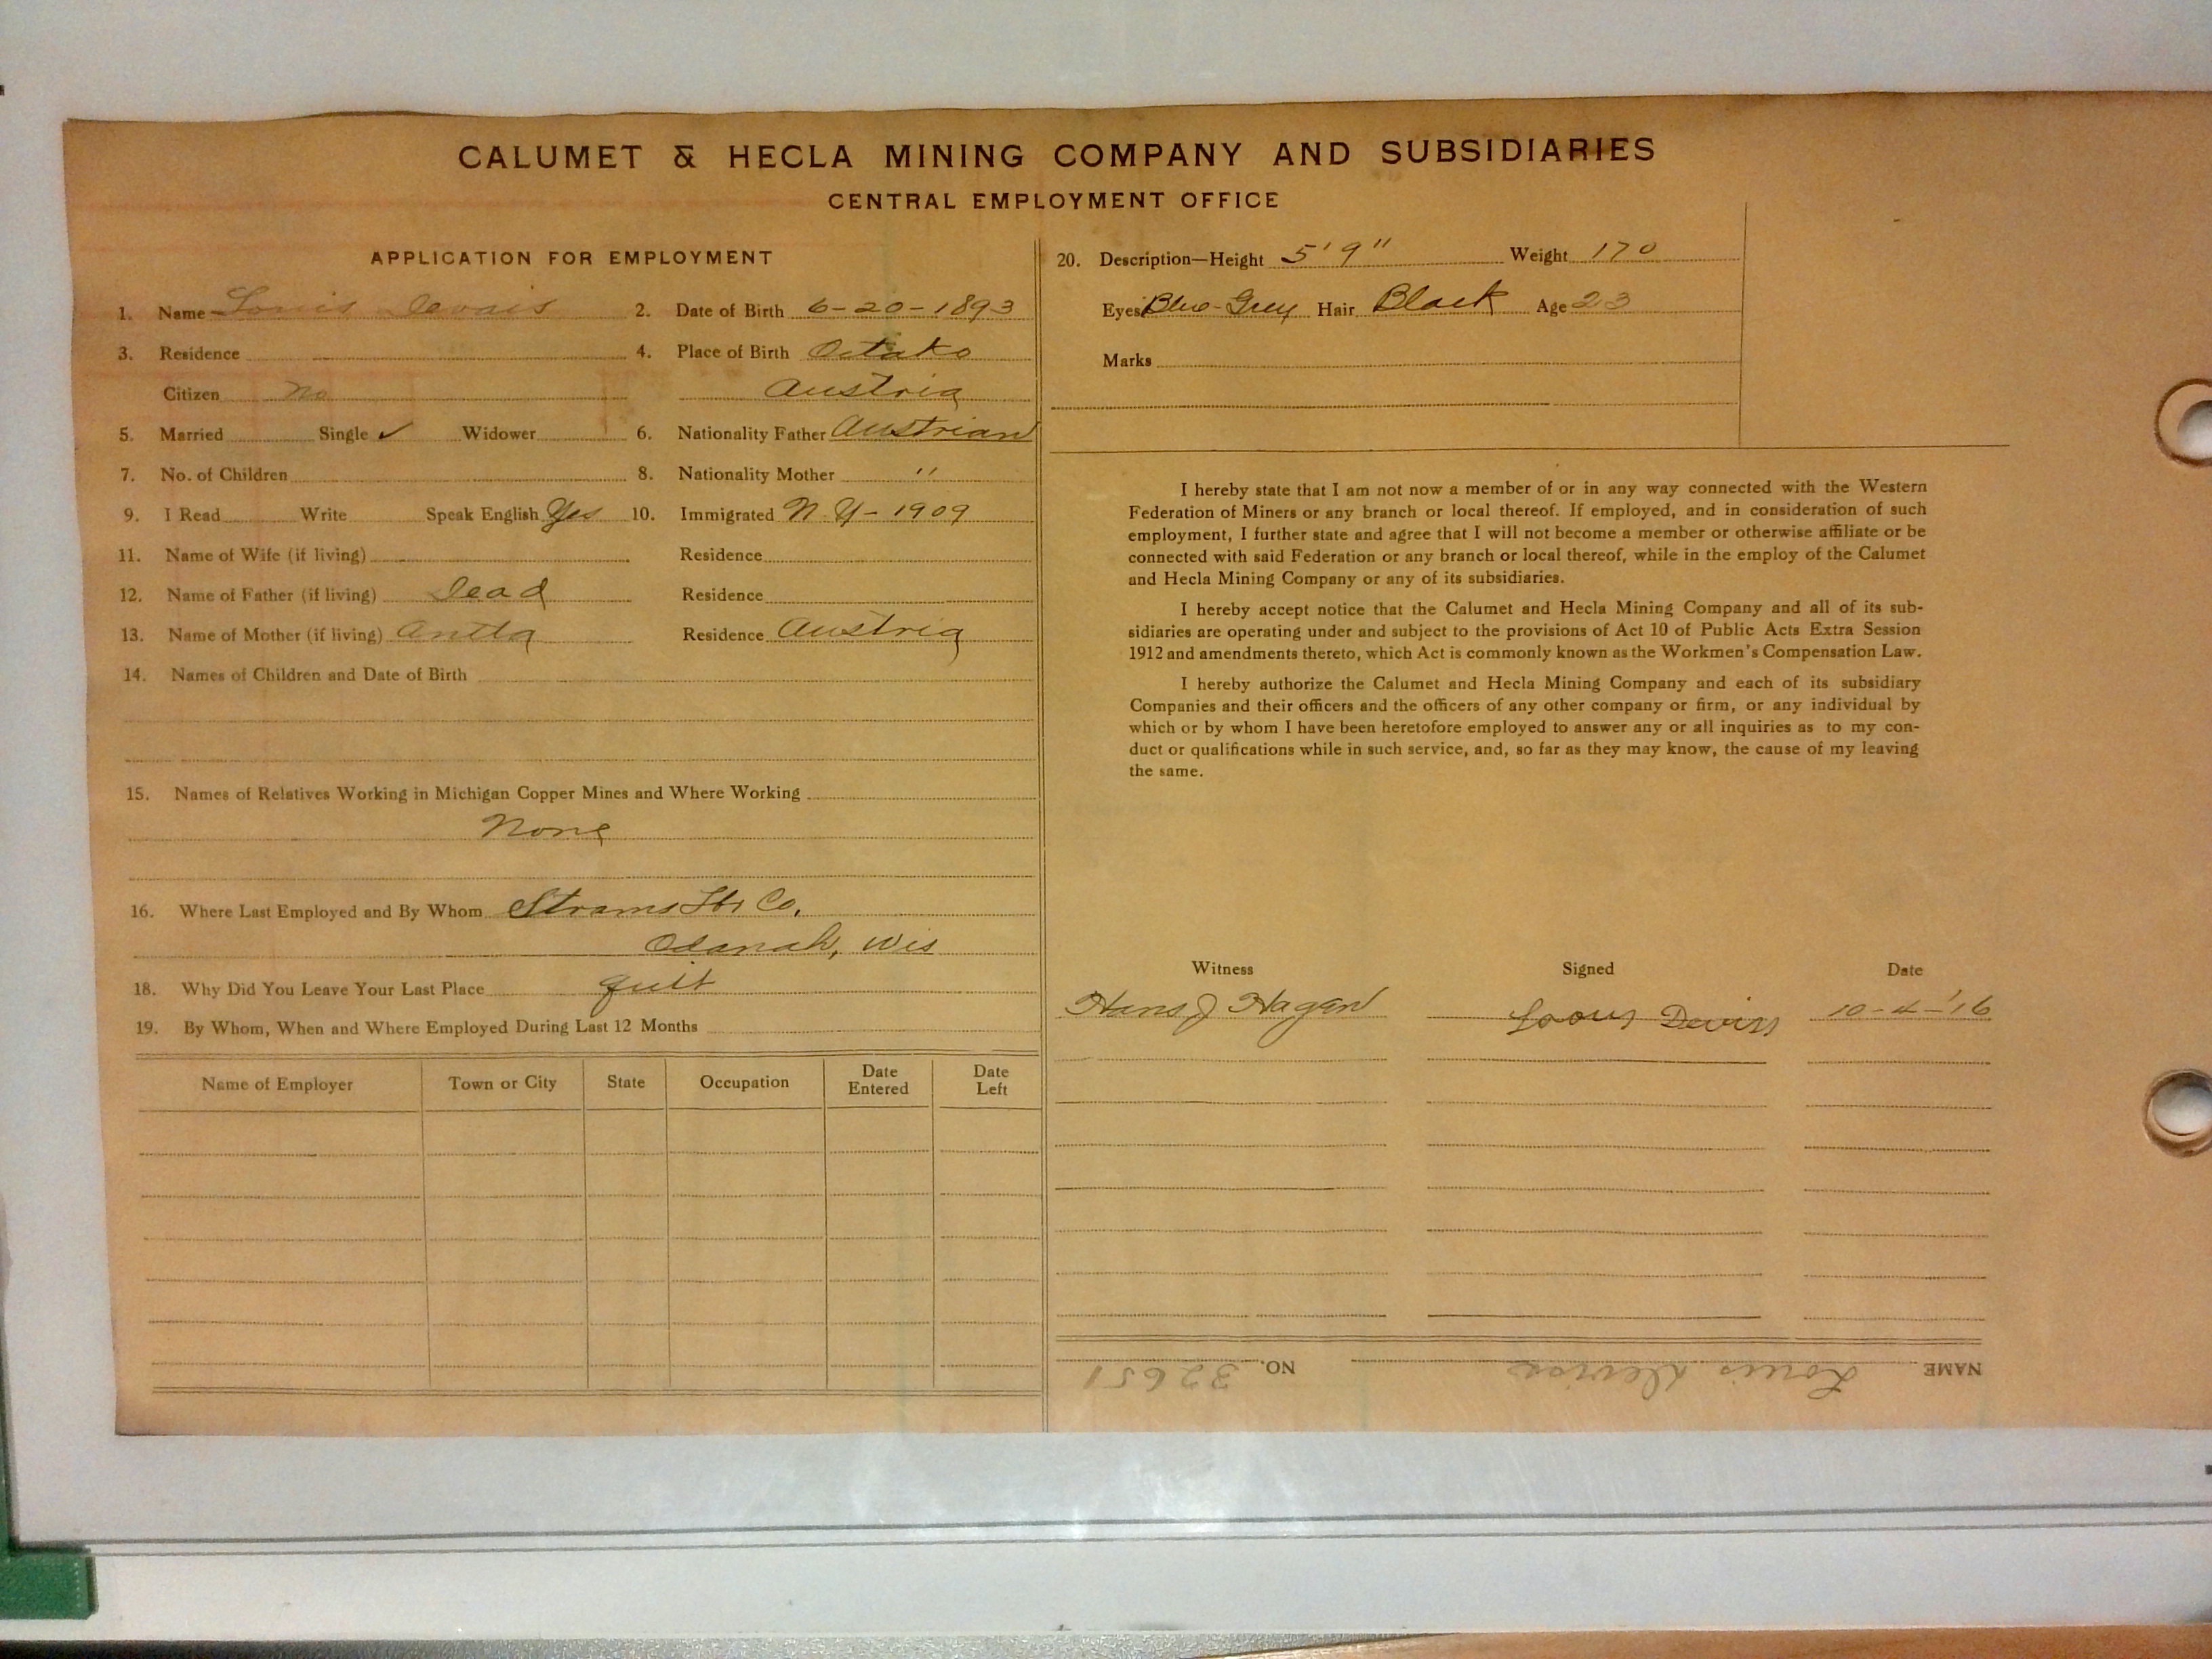 CALUMET & HECLA MINING COMPANY AND SUBSIDIARIES
CENTRAL EMPLOYMENT OFFICE
APPLICATION FOR EMPLOYMENT
1. Name Louis 2. Date of Birth 6-20-1893
3. Residence 4. Place of Birth
Citizen No Austria
5. Married Single ✓ Widower 6. Nationality Father Austrian
7. No. of Children 8. Nationality Mother "
9. I Read Write Speak English Yes 10. Immigrated N.Y - 1909
11. Name of Wife (if living) Residence
12. Name of Father (if living) Dead Residence
13. Name of Mother (if living) Residence Austria
14. Names of Children and Date of Birth
15. Names of Relatives Working in Michigan Copper Mines and Where Working
None
16. Where Last Employed and By Whom Co.
Odanah, Wis
18. Why Did You Leave Your Last Place quit
19. By Whom, When and Where Employed During Last 12 Months
Name of Employer Town or City State Occupation Date Entered Date Left
20. Description—Height 5'9" Weight 170
Eyes Blue-Grey Hair Black Age 23
Marks
I hereby state that I am not now a member of or in any way connected with the Western
Federation of Miners or any branch or local thereof. If employed, and in consideration of such
employment, I further state and agree that I will not become a member or otherwise affiliate or be
connected with said Federation or any branch or local thereof, while in the employ of the Calumet
and Hecla Mining Company or any of its subsidiaries.
I hereby accept notice that the Calumet and Hecla Mining Company and all of its sub-
sidiaries are operating under and subject to the provisions of Act 10 of Public Acts Extra Session
1912 and amendments thereto, which Act is commonly known as the Workmen's Compensation Law.
I hereby authorize the Calumet and Hecla Mining Company and each of its subsidiary
Companies and their officers and the officers of any other company or firm, or any individual by
which or by whom I have been heretofore employed to answer any or all inquiries as to my con-
duct or qualifications while in such service, and, so far as they may know, the cause of my leaving
the same.
Witness Signed Date
Hans J Hagen 10-4-'16
NAME Louis NO. 32651